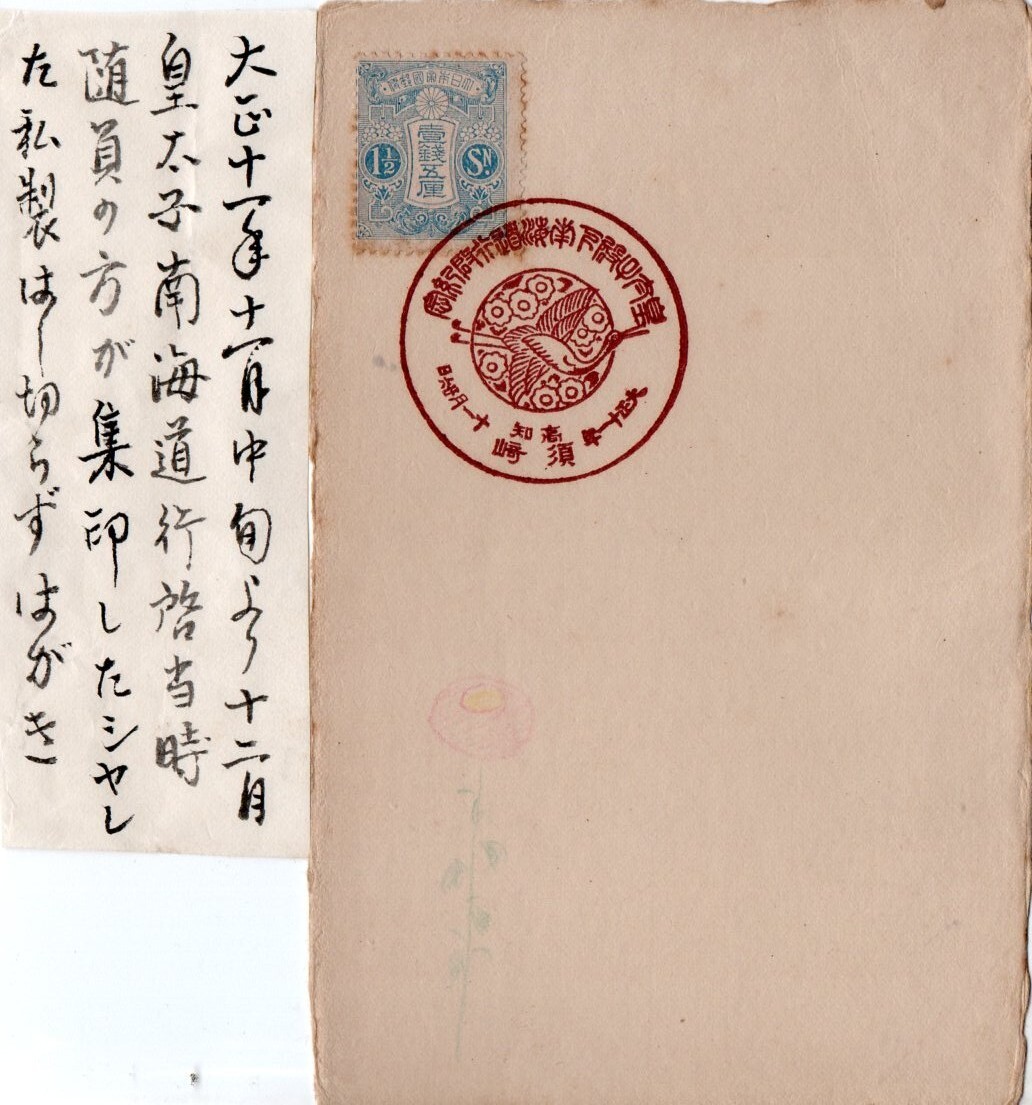 大正十一年十一月中旬より十二月
皇太子南海道行啓当時
随員の方が集印したシャレ
た私製はし切らずはがき
大日本帝國郵便
壹錢五厘
1½
Sn.
皇太子殿下南海道行啓紀念
大正十一年
高知
須崎
十一月